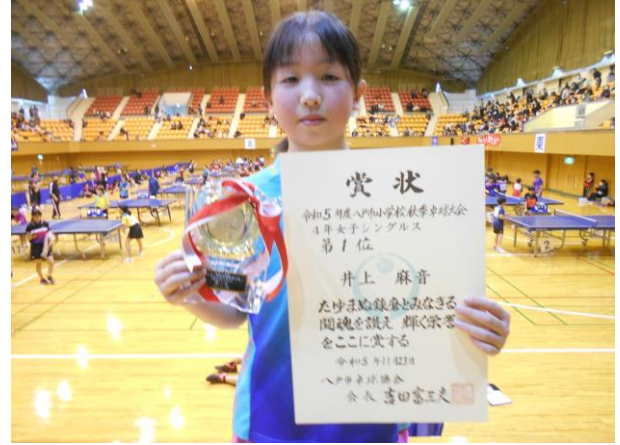 賞状
令和5年度八戸市小学校秋季卓球大会
4年女子シングルス
第1位
井上 麻音
たゆまぬ錬磨とみなぎる
闘魂を讃え 輝く栄誉
をここに賞する
令和5年11月23日
八戸市卓球協会
会長 吉田富三夫
東
2